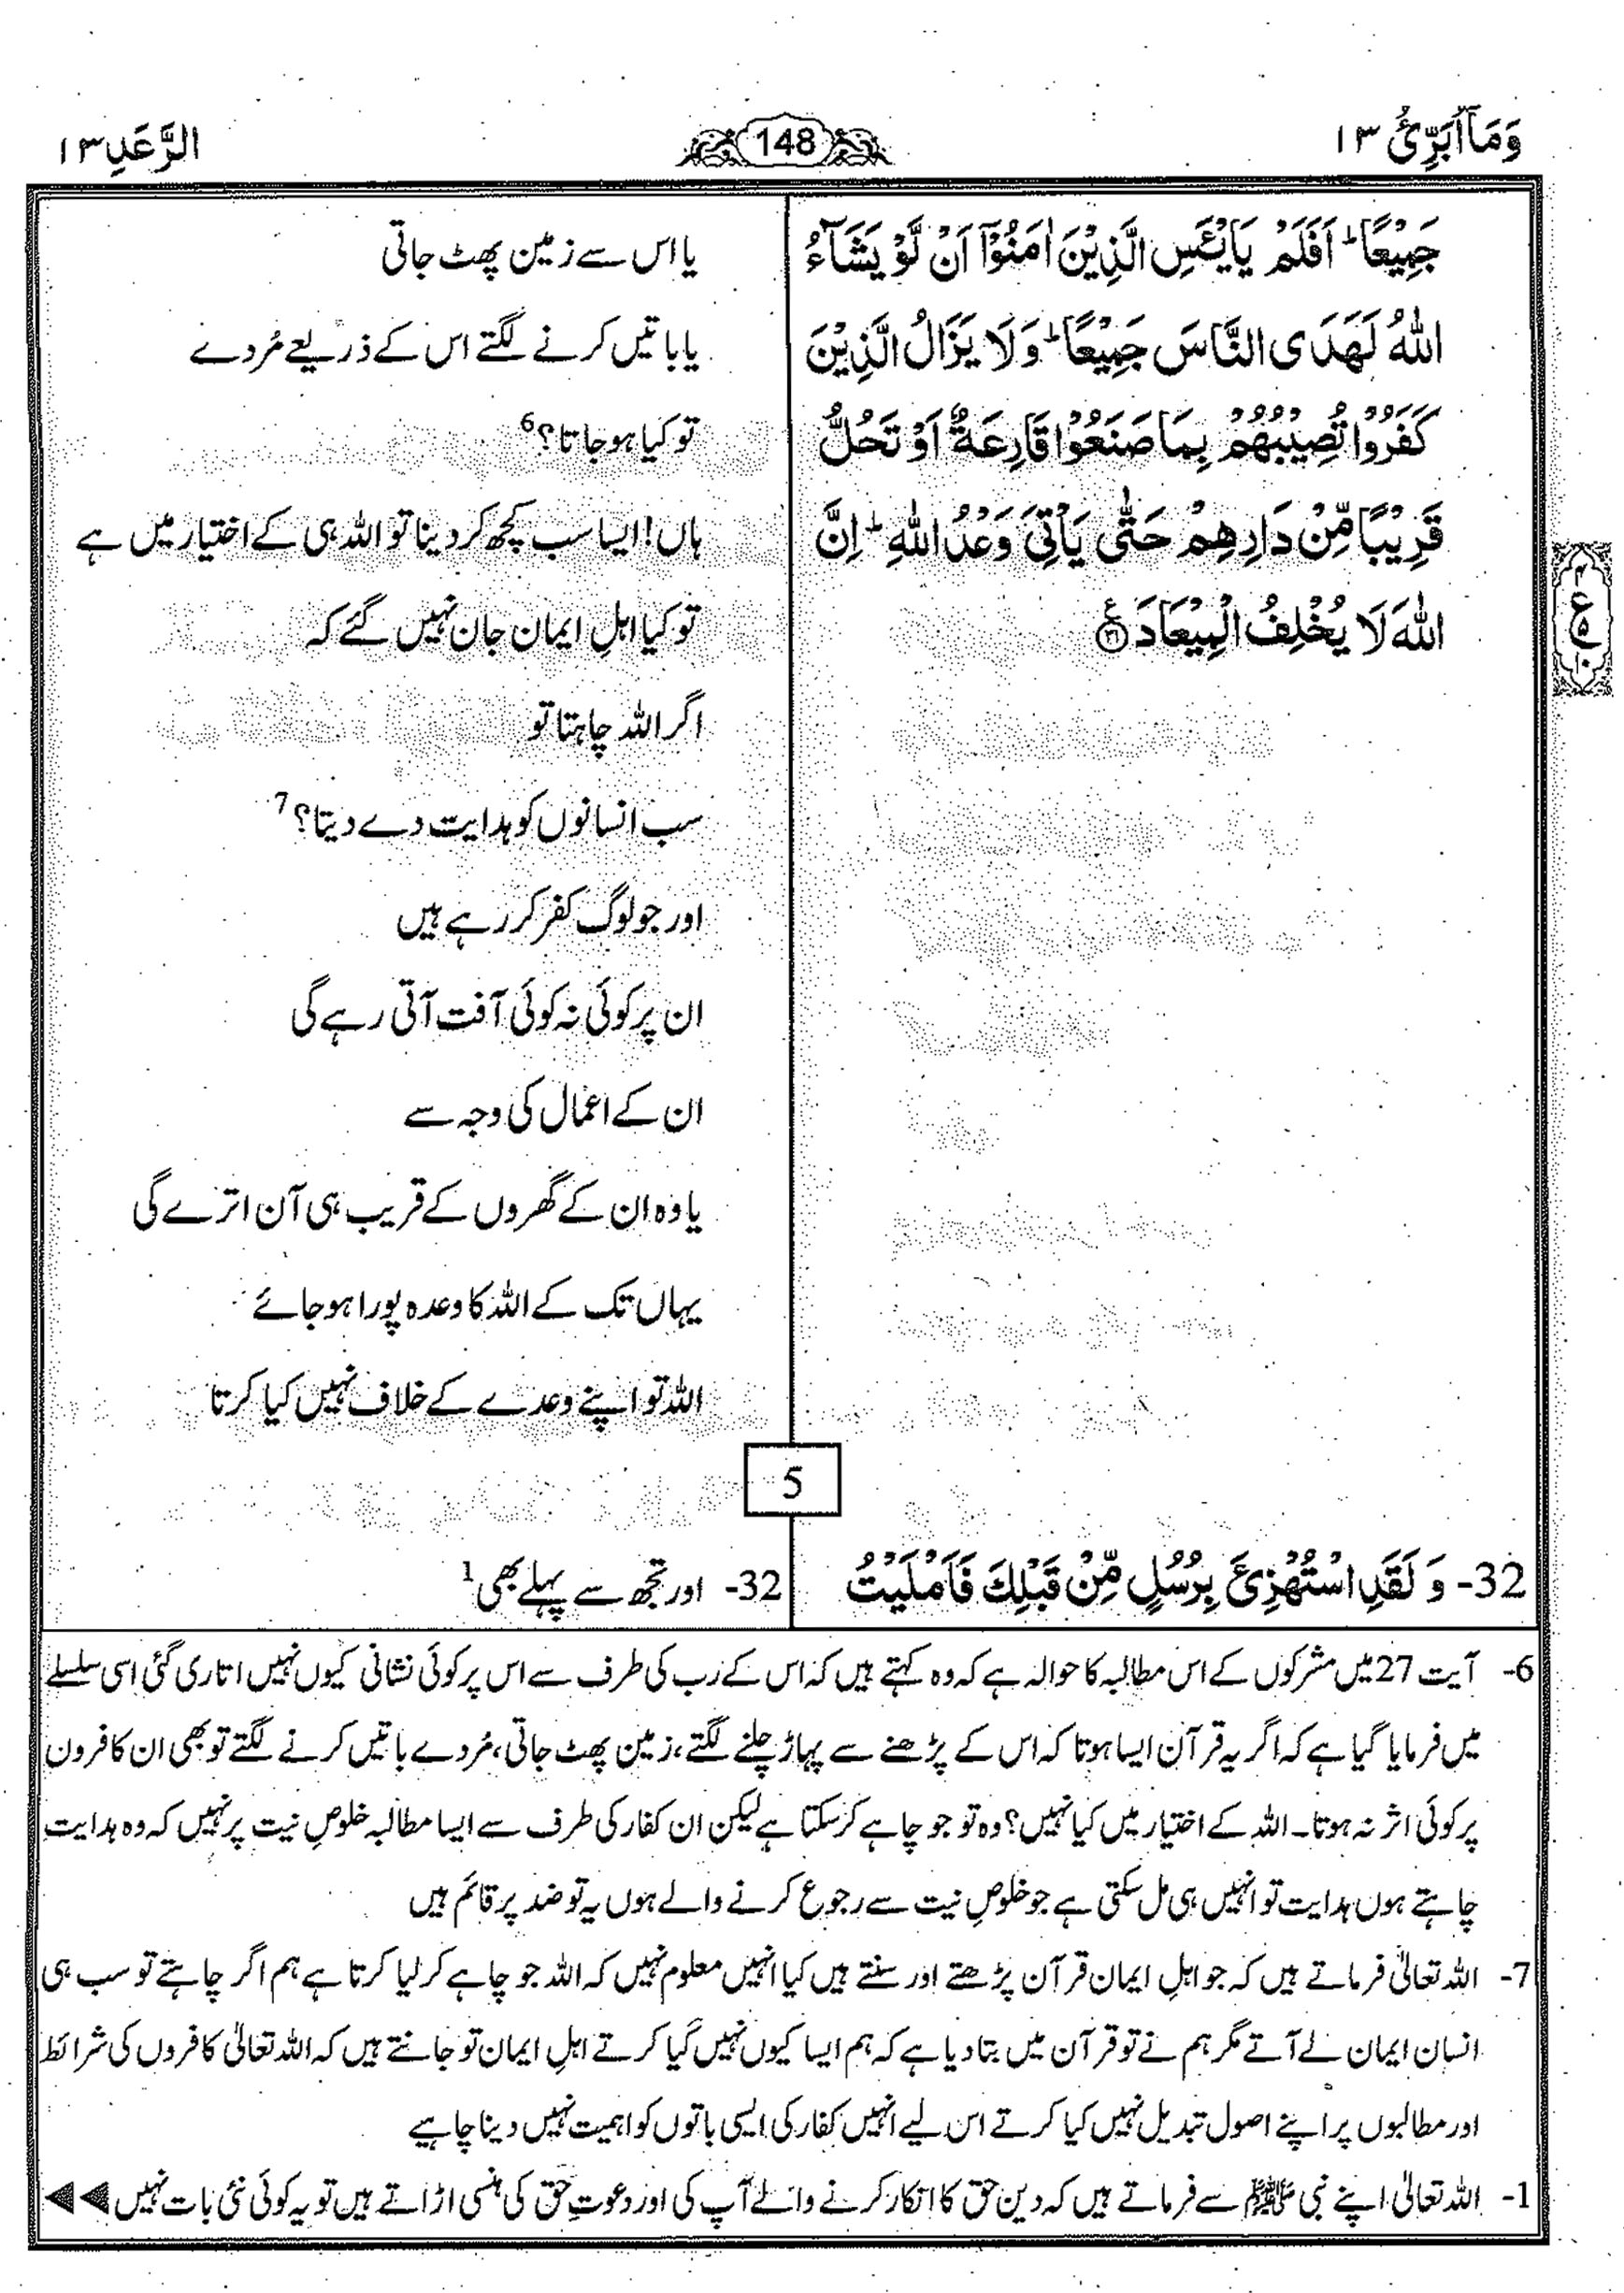 وَمَاۤ اُبَرِّئُ ١٣
148
الرَّعْدِ ١٣
جَمِيْعًا ؕ اَفَلَمْ يَايْـَٔسِ الَّذِيْنَ اٰمَنُوْۤا اَنْ لَّوْ يَشَآءُ
اللّٰهُ لَهَدَى النَّاسَ جَمِيْعًا ؕ وَلَا يَزَالُ الَّذِيْنَ
كَفَرُوْا تُصِيْبُهُمْ بِمَا صَنَعُوْا قَارِعَةٌ اَوْ تَحُلُّ
قَرِيْبًا مِّنْ دَارِهِمْ حَتّٰى يَاْتِيَ وَعْدُ اللّٰهِ ؕ اِنَّ
اللّٰهَ لَا يُخْلِفُ الْمِيْعَادَ ۧ ﴿٣١﴾
یا اس سے زمین پھٹ جاتی
یا باتیں کرنے لگتے اس کے ذریعے مُردے
تو کیا ہو جاتا؟ 6
ہاں! ایسا سب کچھ کر دینا تو اللہ ہی کے اختیار میں ہے
تو کیا اہلِ ایمان جان نہیں گئے کہ
اگر اللہ چاہتا تو
سب انسانوں کو ہدایت دے دیتا؟ 7
اور جو لوگ کفر کر رہے ہیں
ان پر کوئی نہ کوئی آفت آتی رہے گی
ان کے اعمال کی وجہ سے
یا وہ ان کے گھروں کے قریب ہی آن اترے گی
یہاں تک کے اللہ کا وعدہ پورا ہو جائے
اللہ تو اپنے وعدے کے خلاف نہیں کیا کرتا
5
32- وَ لَقَدِ اسْتُهْزِئَ بِرُسُلٍ مِّنْ قَبْلِكَ فَاَمْلَيْتُ
32- اور تجھ سے پہلے بھی 1
6- آیت 27 میں مشرکوں کے اس مطالبہ کا حوالہ ہے کہ وہ کہتے ہیں کہ اس کے رب کی طرف سے اس پر کوئی نشانی کیوں نہیں اتاری گئی اسی سلسلے
میں فرمایا گیا ہے کہ اگر یہ قرآن ایسا ہوتا کہ اس کے پڑھنے سے پہاڑ چلنے لگتے، زمین پھٹ جاتی، مُردے باتیں کرنے لگتے تو بھی ان کافروں
پر کوئی اثر نہ ہوتا۔ اللہ کے اختیار میں کیا نہیں؟ وہ تو جو چاہے کر سکتا ہے لیکن ان کفار کی طرف سے ایسا مطالبہ خلوصِ نیت پر نہیں کہ وہ ہدایت
چاہتے ہوں ہدایت تو انہیں ہی مل سکتی ہے جو خلوصِ نیت سے رجوع کرنے والے ہوں یہ تو ضد پر قائم ہیں
7- اللہ تعالیٰ فرماتے ہیں کہ جو اہلِ ایمان قرآن پڑھتے اور سنتے ہیں کیا انہیں معلوم نہیں کہ اللہ جو چاہے کر لیا کرتا ہے ہم اگر چاہتے تو سب ہی
انسان ایمان لے آتے مگر ہم نے تو قرآن میں بتا دیا ہے کہ ہم ایسا کیوں نہیں کیا کرتے اہلِ ایمان تو جانتے ہیں کہ اللہ تعالیٰ کافروں کی شرائط
اور مطالبوں پر اپنے اصول تبدیل نہیں کیا کرتے اس لیے انہیں کفار کی ایسی باتوں کو اہمیت نہیں دینا چاہیے
1- اللہ تعالیٰ اپنے نبی ﷺ سے فرماتے ہیں کہ دین حق کا انکار کرنے والے آپ کی اور دعوتِ حق کی ہنسی اڑاتے ہیں تو یہ کوئی نئی بات نہیں ◀◀